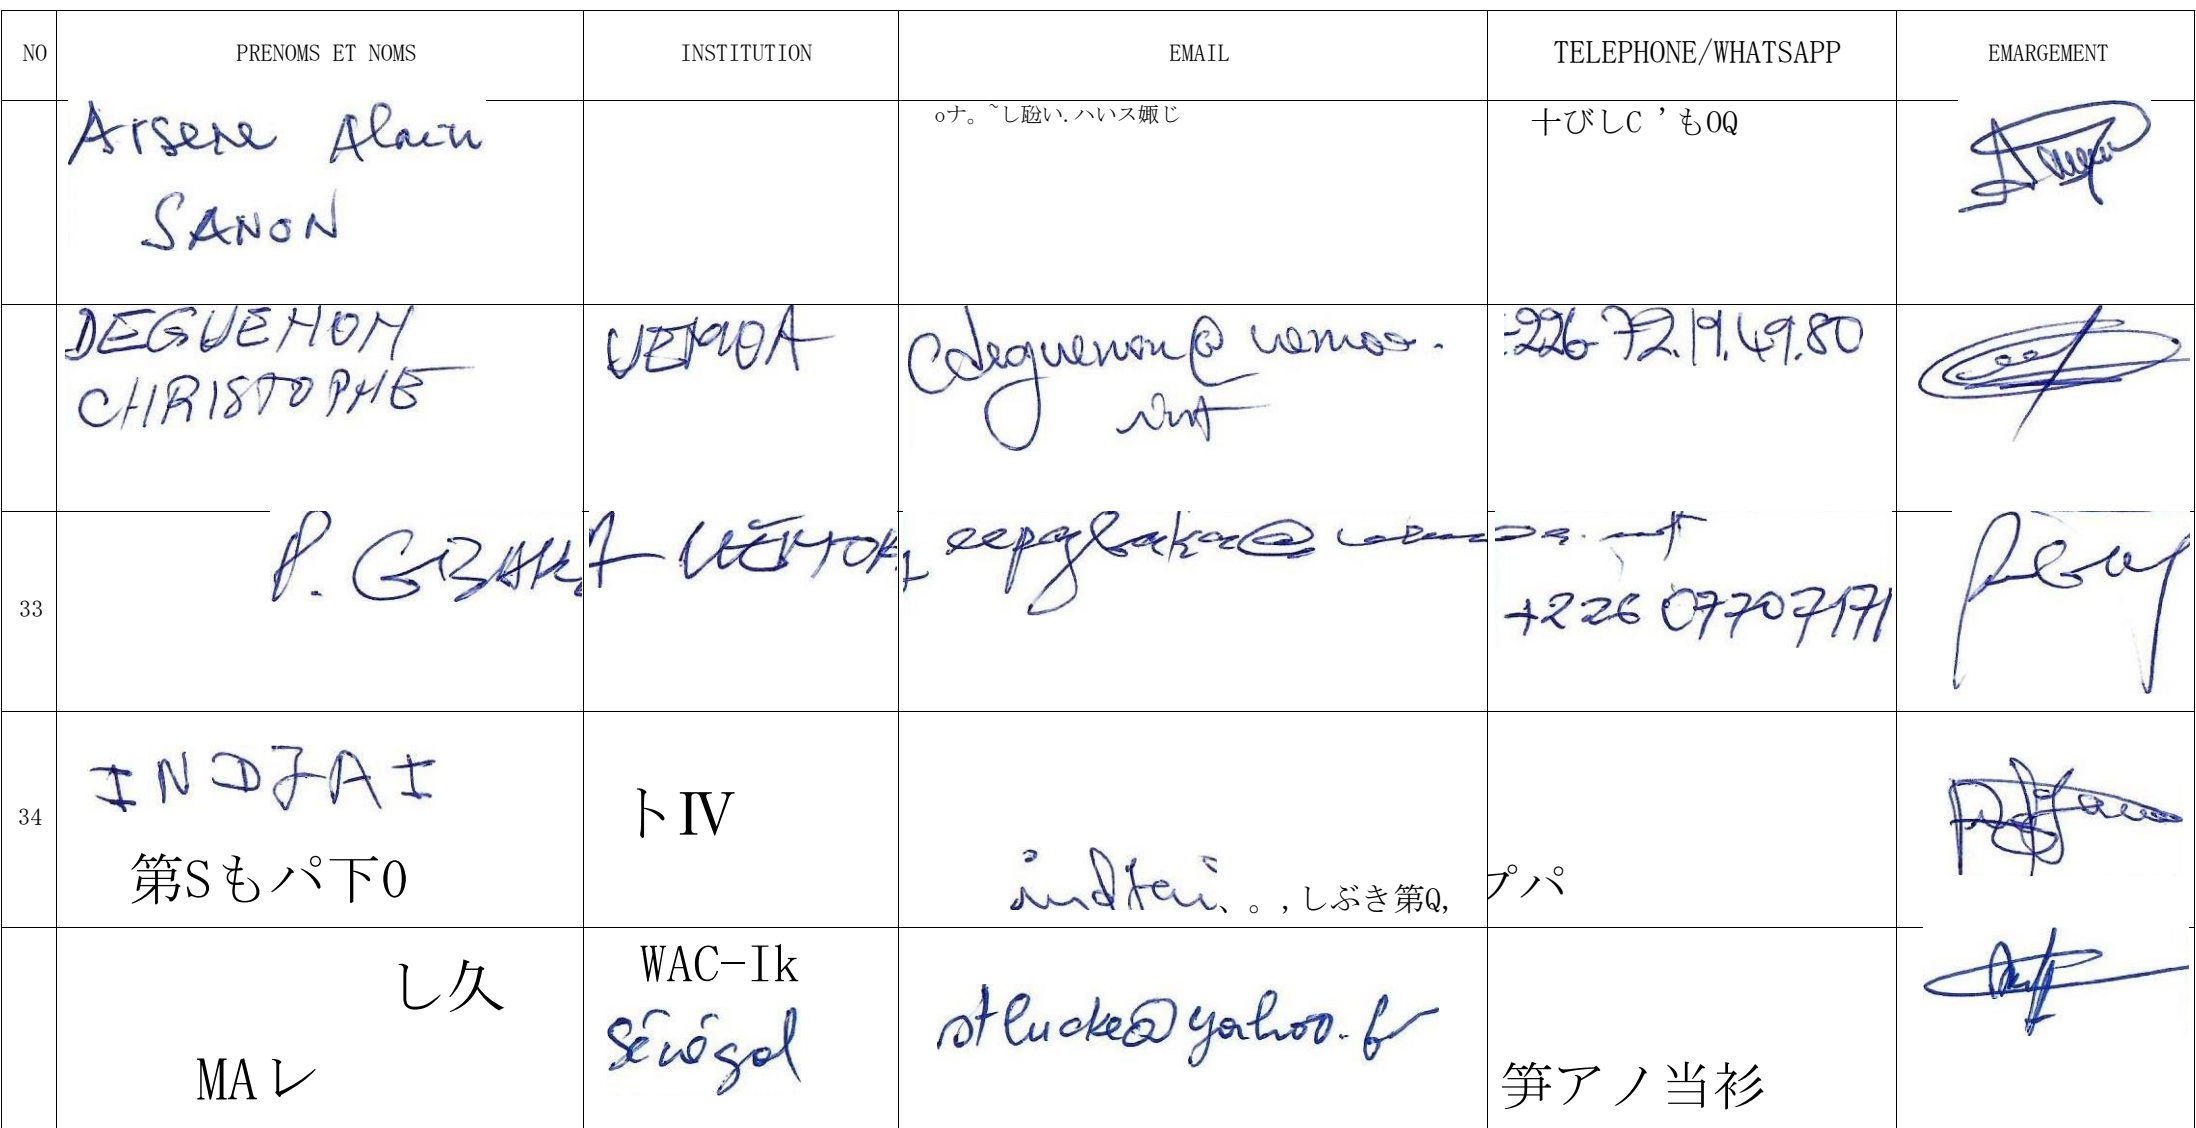 NO PRENOMS ET NOMS INSTITUTION EMAIL TELEPHONE/WHATSAPP EMARGEMENT
Arsene Alain
SANON
oナ。~し瓰い.ハいス娵じ
十びしC ’もOQ
DEGUENON
CHRISTOPHE
UEMOA
cdeguenon@uemoa.
int
+226 72.19.49.80
33
P. GBAKA UEMOA eepgbaka@uemoa.int
+226 07707171
34
INDJAI
第Sもパ下0
トⅣ
indjai、。,しぶき第Q,
プパ
し久
MAレ
WAC-Ik
Sénégal
stlucke@yahoo.fr
笋アノ当衫